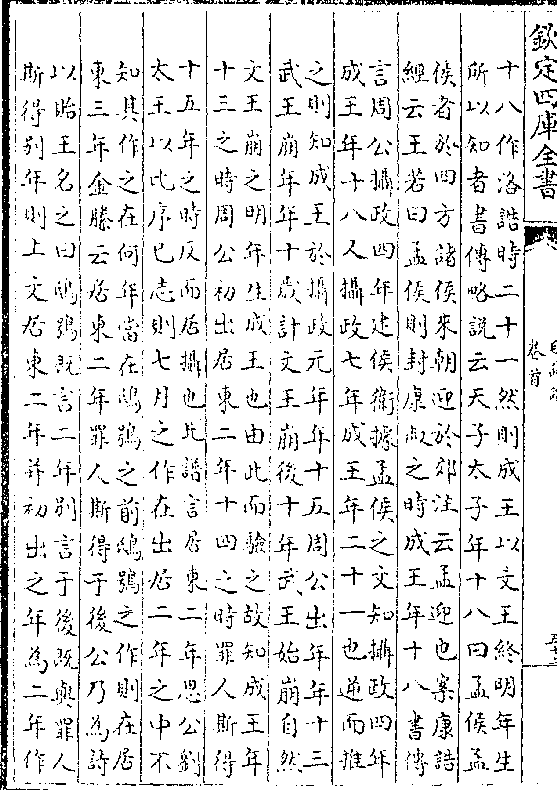 欽定四庫全書
卷首
十八作洛誥時二十一然則成王以文王終明年生
所以知者書傳略說云天子太子年十八曰孟侯孟
侯者於四方諸侯來朝迎於郊注云孟迎也案康誥
經云王若曰孟侯則封康叔之時成王年十八書傳
言周公攝政四年建侯衛據孟侯之文知攝政四年
成王年十八人攝政七年成王年二十一也逆而推
之則知成王於攝政元年年十五周公出年年十三
武王崩年年十歲計文王崩後十年武王始崩自然
文王崩之明年生成王也由此而驗之故知成王年
十三之時周公初出居東二年十四之時罪人斯得
十五年之時反而居攝也此譜言居東二年思公劉
太王以此序已志則七月之作在出居二年之中不
知其作之在何年當在鴟鴞之前鴟鴞之作則在居
東三年金縢云居東二年罪人斯得于後公乃為詩
以貽王名之曰鴟鴞既言二年别言于後既與罪人
斯得别年則上文居東二年并初出之年為二年作